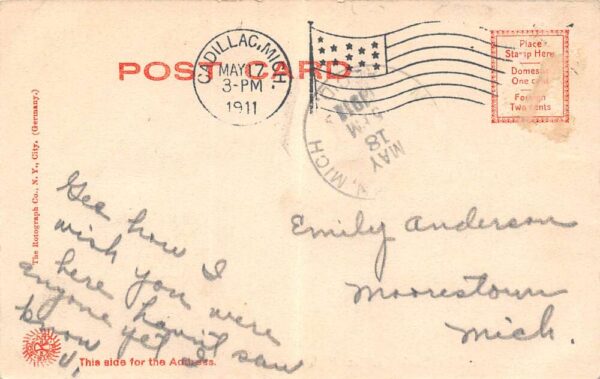 POST CARD
CADILLAC, MICH.
MAY 17
3-PM
1911
MAY
18
MICH
Place
Stamp Here
Domestic
One cent
Foreign
Two cents
The Rotograph Co., N. Y., City. (Germany.)
Gee how I
wish you were
here havin't saw
anyone yet I
know
Emily Anderson
Moorestown
Mich.
This side for the Address.